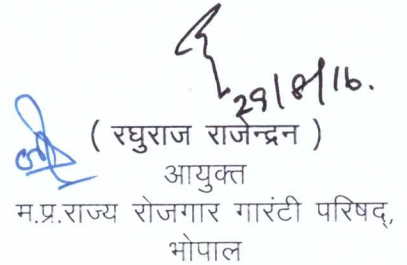 29/8/16.
( रघुराज राजेन्द्रन )
आयुक्त
म.प्र.राज्य रोजगार गारंटी परिषद्,
भोपाल